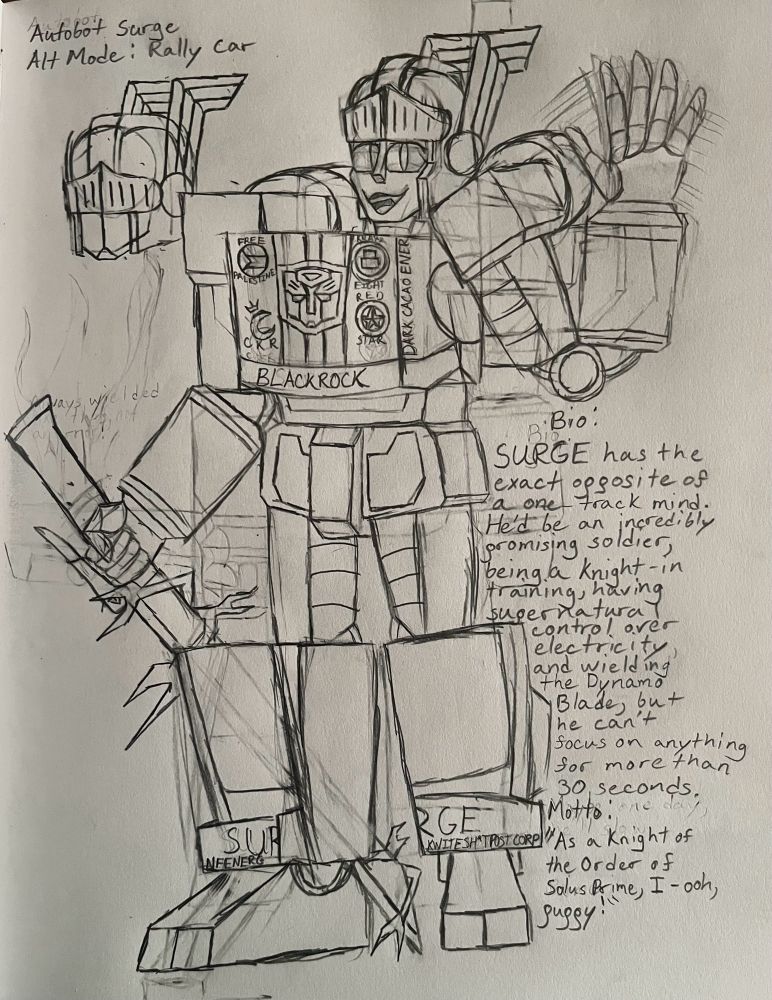 Autobot Surge
Alt Mode: Rally Car
FREE
PALESTINE
EIGHT
RED
STAR
CKR
DARK CACAO EVER
BLACKROCK
Always wielded
Bio:
SURGE has the
exact opposite of
a one-track mind.
He'd be an incredibly
promising soldier,
being a knight-in
training, having
supernatural
control over
electricity,
and wielding
the Dynamo
Blade, but
he can't
focus on anything
for more than
30 seconds.
Motto:
"As a Knight of
the Order of
Solus Prime, I-ooh,
puggy!"
SUR
RGE
NEENERG
KWITESH*TPOST CORP